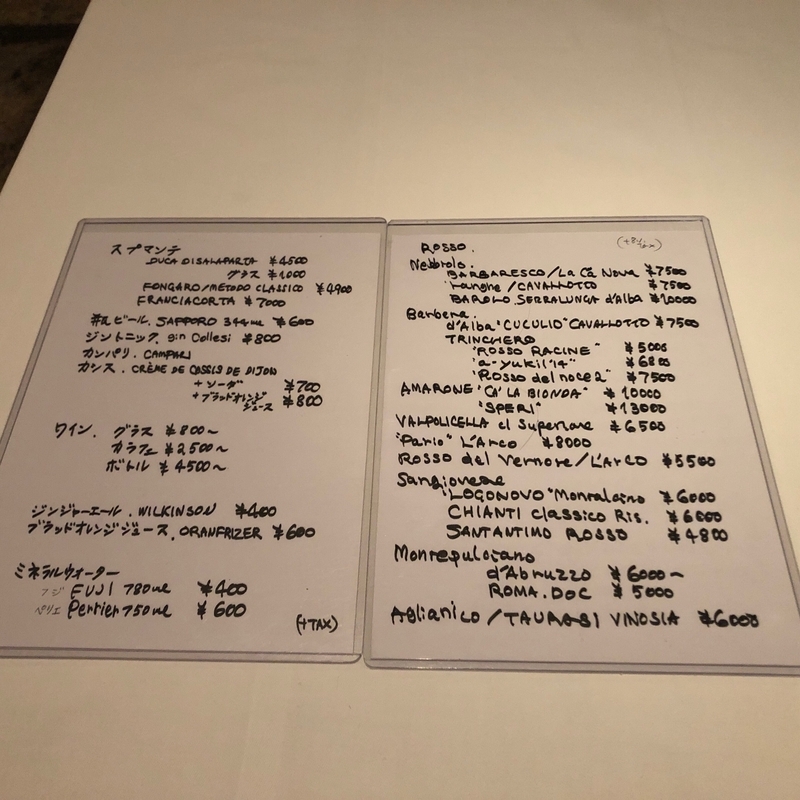 スプマンテ
DUCA DI SALAPARTA ¥4500
グラス ¥1000
FONGARO/METODO CLASSICO ¥4900
FRANCIACORTA ¥7000
ビール. SAPPORO 344ml ¥600
ジントニック. gin Collesi ¥800
カンパリ. CAMPARI
カシス. CRÈME DE CASSIS DE DIJON
+ソーダ ¥700
+ブラッドオレンジ
ジュース ¥800
ワイン. グラス ¥800〜
カラフェ ¥2,500〜
ボトル ¥4500〜
ジンジャーエール. WILKINSON ¥400
ブラッドオレンジジュース. ORANFRIZER ¥600
ミネラルウォーター
フジ FUJI 780ml ¥400
ペリエ Perrier 750ml ¥600
(+TAX)
ROSSO.
Nebbiolo.
BARBARESCO/La Cà Nova ¥7500
Langhe/CAVALLOTTO ¥7500
BAROLO SERRALUNGA d'Alba ¥10000
Barbera.
d'Alba "CUCULIO" CAVALLOTTO ¥7500
TRINCHERO
"ROSSO RACINE" ¥5000
"a-yuki '14" ¥6800
"Rosso del noce 2" ¥7500
AMARONE "CA' LA BIONDA" ¥10000
"SPERI" ¥13000
VALPOLICELLA cl Superiore ¥6500
"Pario" L'Arco ¥8000
ROSSO del Vernore/L'ARCO ¥5500
Sangiovese
"LOGONOVO" Montalcino ¥6000
CHIANTI Classico Ris. ¥6000
SANTANTIMO ROSSO ¥4800
Montepulciano
d'Abruzzo ¥6000〜
ROMA.DOC ¥5000
Aglianico/TAURASI VINOSIA ¥6000